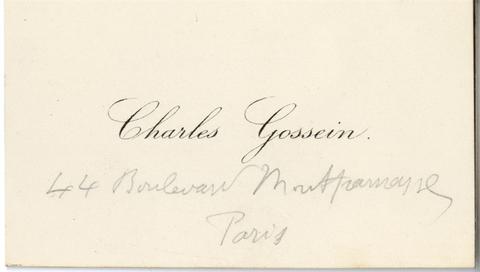 Charles Gossein.
44 Boulevard Montparnasse
Paris